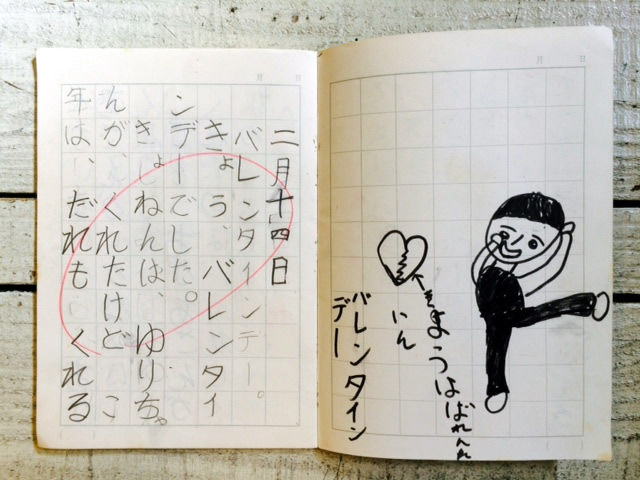 月 日
二月十四日
バレンタインデー。
きょう、バレンタイ
ンデーでした。
きょねんは、ゆりちゃ
んが、くれたけど、こ
年は、だれもくれる
月 日
きようはばれんた
いん
バレンタイン
デー